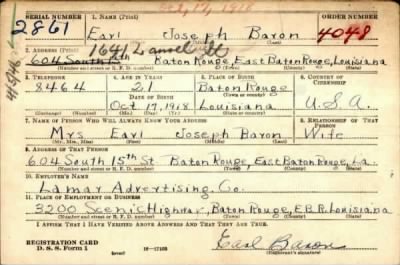 Oct. 17, 1918
SERIAL NUMBER 1. NAME (Print) ORDER NUMBER
2861 Earl Joseph Baron 4048
(First) (Middle) (Last)
2. ADDRESS (Print) 1641
604 South 15th Baton Rouge, East Baton Rouge, Louisiana
(Number and street or R. F. D. number) (Town) (County) (State)
3. TELEPHONE 4. AGE IN YEARS 5. PLACE OF BIRTH 6. COUNTRY OF CITIZENSHIP
8464 21 Baton Rouge
DATE OF BIRTH (Town or county)
Oct 17, 1918 Louisiana U.S.A.
(Mo.) (Day) (Yr.) (State or country)
7. NAME OF PERSON WHO WILL ALWAYS KNOW YOUR ADDRESS 8. RELATIONSHIP OF THAT PERSON
Mrs Earl Joseph Baron Wife
(Mr., Mrs., Miss) (First) (Middle) (Last)
9. ADDRESS OF THAT PERSON
604 South 15th St. Baton Rouge, East Baton Rouge, La.
(Number and street or R. F. D. number) (Town) (County) (State)
10. EMPLOYER'S NAME
Lamar Advertising. Co.
11. PLACE OF EMPLOYMENT OR BUSINESS
3200 Scenic Highway, Baton Rouge, E.B.R. Louisiana
(Number and street or R. F. D. number) (Town) (County) (State)
I AFFIRM THAT I HAVE VERIFIED ABOVE ANSWERS AND THAT THEY ARE TRUE.
REGISTRATION CARD
D. S. S. Form 1 (over) 16—17105 Earl Baron
(Registrant's signature)